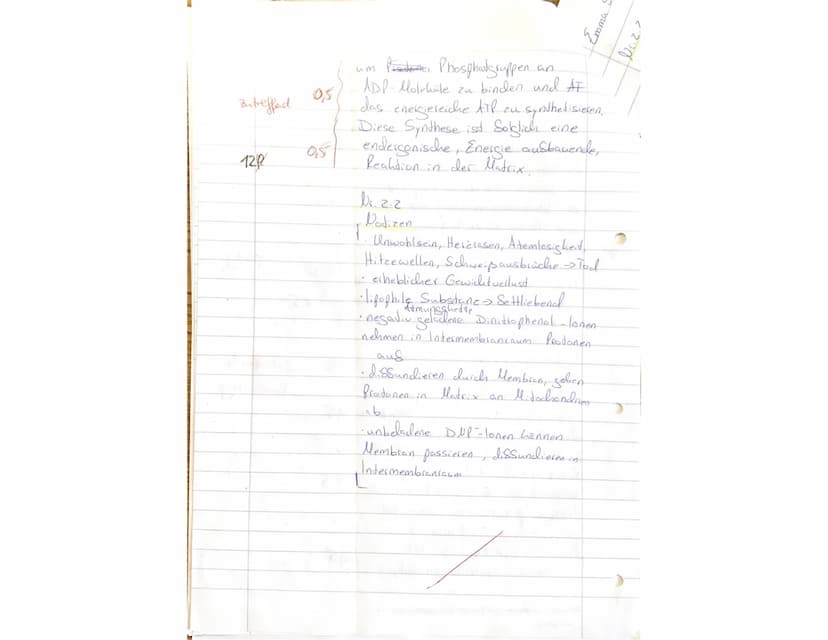 Emma S
Nr. 2.2
um Phosphatgruppen an
ADP-Moleküle zu binden und AT
das energiereiche ATP zu synthetisieren.
zutreffend 0,5
Diese Synthese ist folglich eine
endergonische, Energie aufbauende,
0,5
12P
Reaktion in der Matrix.
Nr. 2.2
Notizen
Unwohlsein, Herzrasen, Atemlosigkeit,
Hitzewellen, Schweißausbrüche → Tod
· erheblicher Gewichtverlust
· lipophile Substanz → fettliebend
Atmungskette
· negativ geladene Dinitrophenol-Ionen
nehmen in Intermembranraum Protonen
auf
· diffundieren durch Membran, geben
Protonen in Matrix an Mitochondrium
ab
· unbeladene DNP-Ionen können
Membran passieren, diffundieren in
Intermembranraum